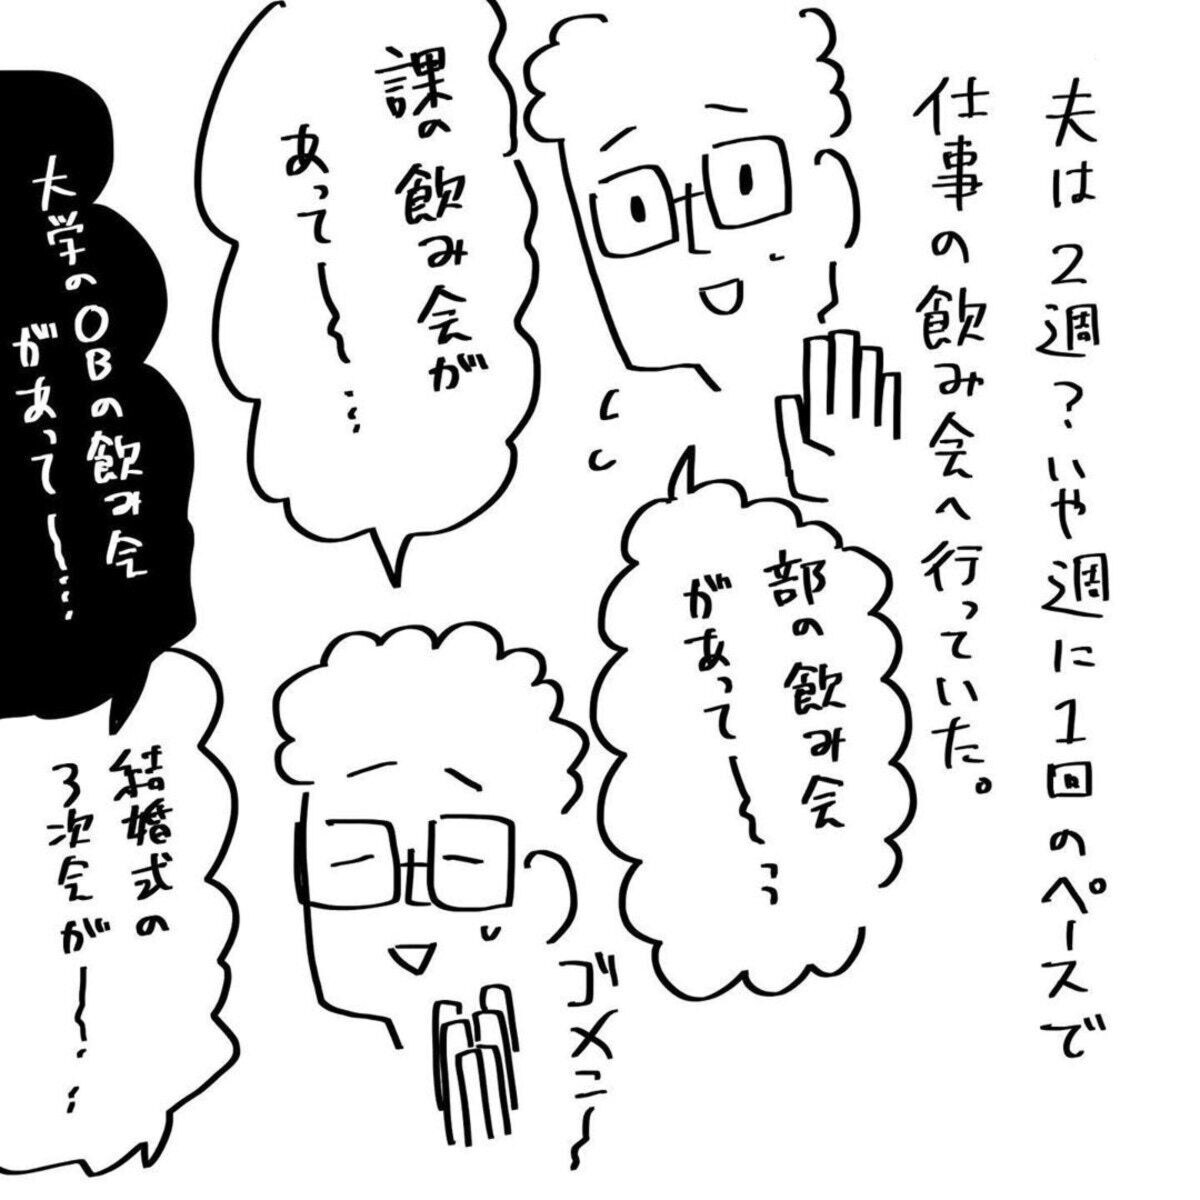 夫は2週?いや週に1回のペースで
仕事の飲み会へ行っていた。
課の飲み会が
あって〜…
部の飲み会
があって〜…
大学のOBの飲み会
があって〜…
ゴメニ〜
結婚式の
3次会が〜…